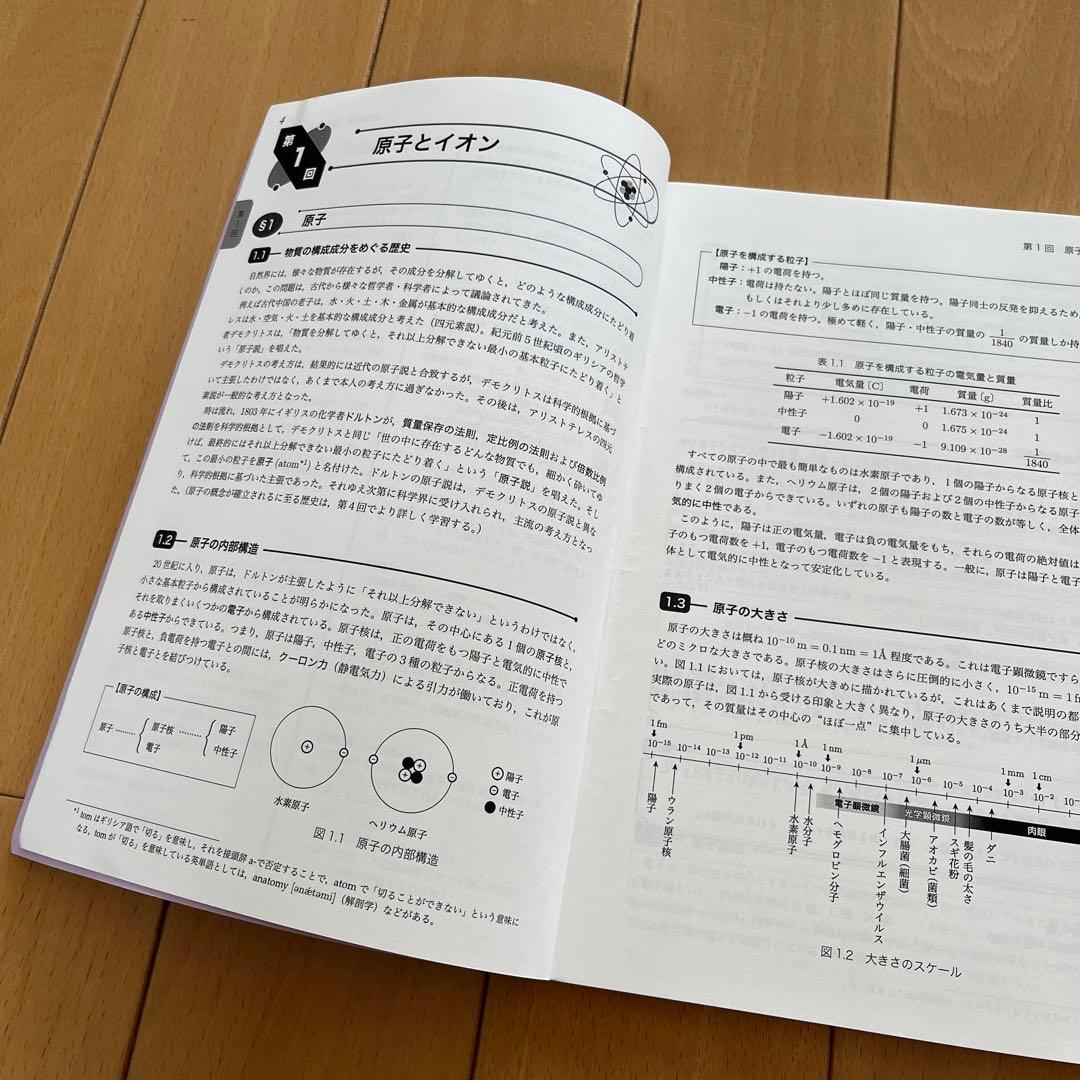 4
第1回
原子とイオン
第1回
§1 原子
1.1 物質の構成成分をめぐる歴史
自然界には，様々な物質が存在するが，その成分を分解してゆくと，どのような構成成分にたどり着
くのか。この問題は，古代から様々な哲学者・科学者によって議論されてきた。
例えば古代中国の老子は，水・火・土・木・金属が基本的な構成成分だと考えた。また，アリストテ
レスは水・空気・火・土を基本的な構成成分と考えた（四元素説）。紀元前5世紀頃のギリシアの哲学
者デモクリトスは，「物質を分解してゆくと，それ以上分解できない最小の基本粒子にたどり着く」と
いう「原子説」を唱えた。
デモクリトスの考え方は，結果的には近代の原子説と合致するが，デモクリトスは科学的根拠に基づ
いて主張したわけではなく，あくまで本人の考え方に過ぎなかった。その後は，アリストテレスの四元
素説が一般的な考え方となった。
時は流れ，1803年にイギリスの化学者ドルトンが，質量保存の法則，定比例の法則および倍数比例
の法則を科学的根拠として，デモクリトスと同じ「世の中に存在するどんな物質でも，細かく砕いてゆ
けば，最終的にはそれ以上分解できない最小の粒子にたどり着く」という「原子説」を唱えた。そし
て，この最小の粒子を原子（atom*1）と名付けた。ドルトンの原子説は，デモクリトスの原子説と異な
り，科学的根拠に基づいた主張であった。それゆえ次第に科学界に受け入れられ，主流の考え方となっ
た。（原子の概念が確立されるに至る歴史は，第4回でより詳しく学習する。）
1.2 原子の内部構造
20世紀に入り，原子は，ドルトンが主張したように「それ以上分解できない」というわけではなく，
小さな基本粒子から構成されていることが明らかになった。原子は，その中心にある1個の原子核と，
それを取りまくいくつかの電子から構成されている。原子核は，正の電荷をもつ陽子と電気的に中性で
ある中性子からできている。つまり，原子は陽子，中性子，電子の3種の粒子からなる。正電荷を持つ
原子核と，負電荷を持つ電子との間には，クーロン力（静電気力）による引力が働いており，これが原
子核と電子とを結びつけている。
【原子の構成】
原子 ……… { 原子核 ……… { 陽子
電子 中性子
水素原子
ヘリウム原子
⊕ 陽子
⊖ 電子
● 中性子
図1.1 原子の内部構造
*1 tomはギリシア語で「切る」を意味し，それを接頭辞a-で否定することで，atomで「切ることができない」という意味に
なる。tomが「切る」を意味している英単語としては，anatomy [ənǽtəmi]（解剖学）などがある。
第1回 原子
【原子を構成する粒子】
陽子：+1の電荷を持つ。
中性子：電荷は持たない。陽子とほぼ同じ質量を持つ。陽子同士の反発を抑えるため，
もしくはそれより少し多めに存在している。
電子：−1の電荷を持つ。極めて軽く，陽子・中性子の質量の 1/1840 の質量しか持
表1.1 原子を構成する粒子の電気量と質量
粒子 電気量〔C〕 電荷 質量〔g〕 質量比
陽子 +1.602 × 10⁻¹⁹ +1 1.673 × 10⁻²⁴ 1
中性子 0 0 1.675 × 10⁻²⁴ 1
電子 −1.602 × 10⁻¹⁹ −1 9.109 × 10⁻²⁸ 1/1840
すべての原子の中で最も簡単なものは水素原子であり，1個の陽子からなる原子核と
構成されている。また，ヘリウム原子は，2個の陽子および2個の中性子からなる原子
りまく2個の電子からできている。いずれの原子も陽子の数と電子の数が等しく，全体
気的に中性である。
このように，陽子は正の電気量，電子は負の電気量をもち，それらの電荷の絶対値は
子のもつ電荷数を+1，電子のもつ電荷数を−1と表現する。一般に，原子は陽子と電子
体として電気的に中性となって安定化している。
1.3 原子の大きさ
原子の大きさは概ね 10⁻¹⁰ m = 0.1 nm = 1Å 程度である。これは電子顕微鏡ですら
どのミクロな大きさである。原子核の大きさはさらに圧倒的に小さく，10⁻¹⁵ m = 1 f
い。図1.1においては，原子核が大きめに描かれているが，これはあくまで説明の都
実際の原子は，図1.1から受ける印象と大きく異なり，原子の大きさのうち大半の部分
であって，その質量はその中心の“ほぼ一点”に集中している。
1 fm 1 pm 1 Å 1 nm 1 μm 1 mm 1 cm
10⁻¹⁵ 10⁻¹⁴ 10⁻¹³ 10⁻¹² 10⁻¹¹ 10⁻¹⁰ 10⁻⁹ 10⁻⁸ 10⁻⁷ 10⁻⁶ 10⁻⁵ 10⁻⁴ 10⁻³ 10⁻² 10
電子顕微鏡 光学顕微鏡 肉眼
陽子
ウラン原子核
水素原子
水分子
ヘモグロビン分子
インフルエンザウイルス
大腸菌（細菌）
アオカビ（菌類）
スギ花粉
髪の毛の太さ
ダニ
図1.2 大きさのスケール